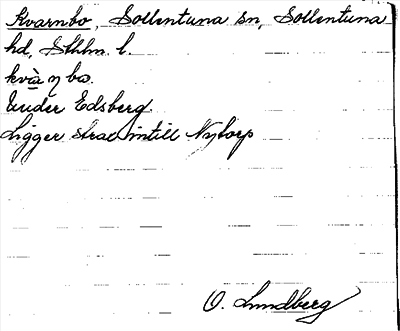 Kvarnbo, Sollentuna sn, Sollentuna
hd, Sthlm l.
kvà ŋ bo.
Under Edsberg.
Ligger strax intill Nytorp
O. Lundberg